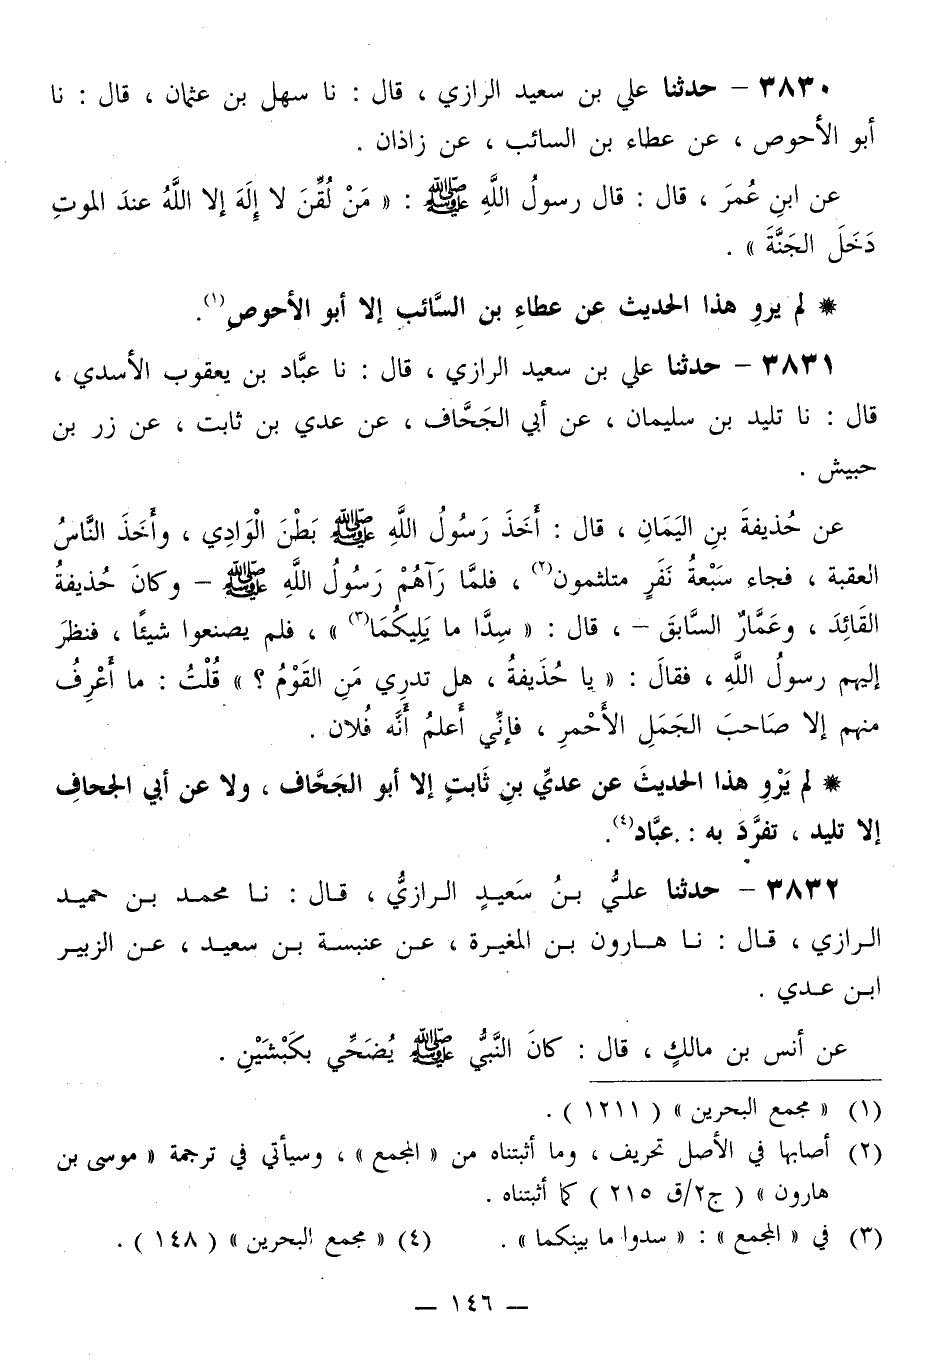 ٣٨٣٠ – حدثنا علي بن سعيد الرازي ، قال : نا سهل بن عثمان ، قال : نا
أبو الأحوص ، عن عطاء بن السائب ، عن زاذان .
عن ابنِ عُمرَ ، قال : قال رسولُ اللَّهِ ﷺ : « مَنْ لُقِّنَ لا إِلَهَ إلا اللَّهُ عندَ الموتِ
دَخَلَ الجَنَّةَ » .
* لم يروِ هذا الحديث عن عطاءِ بن السَّائب إلا أبو الأحوصِ(١).
٣٨٣١ – حدثنا علي بن سعيد الرازي ، قال : نا عبَّاد بن يعقوب الأسدي ،
قال : نا تليد بن سليمان ، عن أبي الجَحَّاف ، عن عدي بن ثابت ، عن زر بن
حبيش .
عن حُذيفةَ بنِ اليَمَانِ ، قال : أَخَذَ رَسُولُ اللَّهِ ﷺ بَطْنَ الْوَادِي ، وأَخَذَ النَّاسُ
العقبة ، فجاء سَبْعةُ نَفَرٍ متلثمون(٢) ، فلمَّا رَآهُمْ رَسُولُ اللَّهِ ﷺ – وكانَ حُذيفةُ
القَائِدَ ، وعَمَّارٌ السَّابقَ – ، قال : « سِدَّا ما يَلِيكُمَا(٣) » ، فلم يصنعوا شيئًا ، فنظرَ
إليهم رسولُ اللَّهِ ، فقالَ : « يا حُذَيفةُ ، هل تدرِي مَنِ القَوْمُ ؟ » قُلْتُ : ما أَعْرِفُ
منهم إلا صَاحبَ الجَمَلِ الأَحْمرِ ، فإنِّي أَعلمُ أَنَّه فُلان .
* لم يَرْوِ هذا الحديثَ عن عديِّ بنِ ثَابتٍ إلا أبو الجَحَّاف ، ولا عن أبي الجحافِ
إلا تليد ، تفرَّدَ به : عبَّاد(٤).
٣٨٣٢ – حدثنا عليُّ بنُ سَعيدٍ الرازيُّ ، قال : نا محمد بن حميد
الرازي ، قال : نا هارون بن المغيرة ، عن عنبسة بن سعيد ، عن الزبير
ابن عدي .
عن أنس بن مالكٍ ، قال : كانَ النَّبيُّ ﷺ يُضَحِّي بكَبْشَيْنِ .
(١) « مجمع البحرين » ( ١٢١١ ) .
(٢) أصابها في الأصل تحريف ، وما أثبتناه من « المجمع » ، وسيأتي في ترجمة « موسى بن
هارون » ( ج٢/ق ٢١٥ ) كما أثبتناه .
(٣) في « المجمع » : « سدوا ما بينكما » . (٤) « مجمع البحرين » ( ١٤٨ ) .
— ١٤٦ —